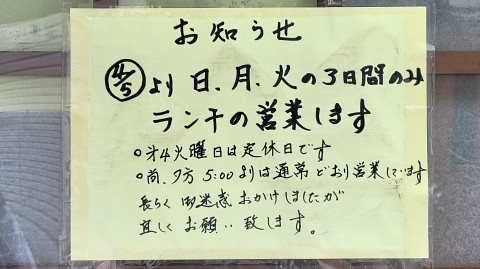 お知らせ
4/5より日、月、火の3日間のみ
ランチの営業します
○才4火曜日は定休日です
○尚、夕方5:00よりは通常どおり営業しています
長らく御迷惑おかけしましたが
宜しくお願い致します。